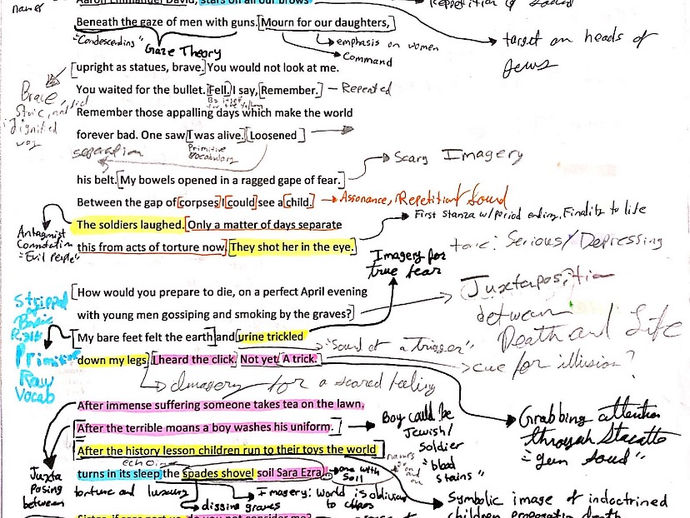 Aaron Emmanuel David, stars on all our brows
names
Beneath the gaze of men with guns. Mourn for our daughters,
"Condescending"
Gaze Theory
emphasis on women
Command
target on heads of
Jews
upright as statues, brave. You would not look at me.
You waited for the bullet. Fell. I say, Remember.
Repeated
Remember those appalling days which make the world
forever bad. One saw I was alive. Loosened
Primitive
Vocabulary
separation
his belt. My bowels opened in a ragged gape of fear.
Scary Imagery
Between the gap of corpses I could see a child.
Assonance, Repetition Sound
The soldiers laughed. Only a matter of days separate
First stanza w/ period ending, Finality to life
this from acts of torture now. They shot her in the eye.
Antagonist
Connotation
"Evil People"
tone: Serious/Depressing
Imagery for
true fear
How would you prepare to die, on a perfect April evening
with young men gossiping and smoking by the graves?
Juxtaposition
between
Death and Life
My bare feet felt the earth and urine trickled
"Sound of a trigger"
down my legs. I heard the click. Not yet. A trick.
cue for illusion?
Stripped
of
Basic
Primitive
Raw
Vocab
Imagery for a scared feeling
After immense suffering someone takes tea on the lawn.
After the terrible moans a boy washes his uniform.
Boy could be
Jewish/
soldier
"blood
stains"
Grabbing attention
through Staccato
"gun sound"
After the history lesson children run to their toys the world
echoing
names
turns in its sleep the spades shovel soil Sara Ezra
one with
soil
Juxta
posing
between
torture and luxury
digging graves
Imagery: world is oblivious
to chaos
Symbolic image of indoctrined